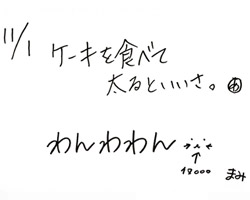 11/1
ケーキを食べて
太るといいさ。わ
わんわわん
↑
18000
まみ